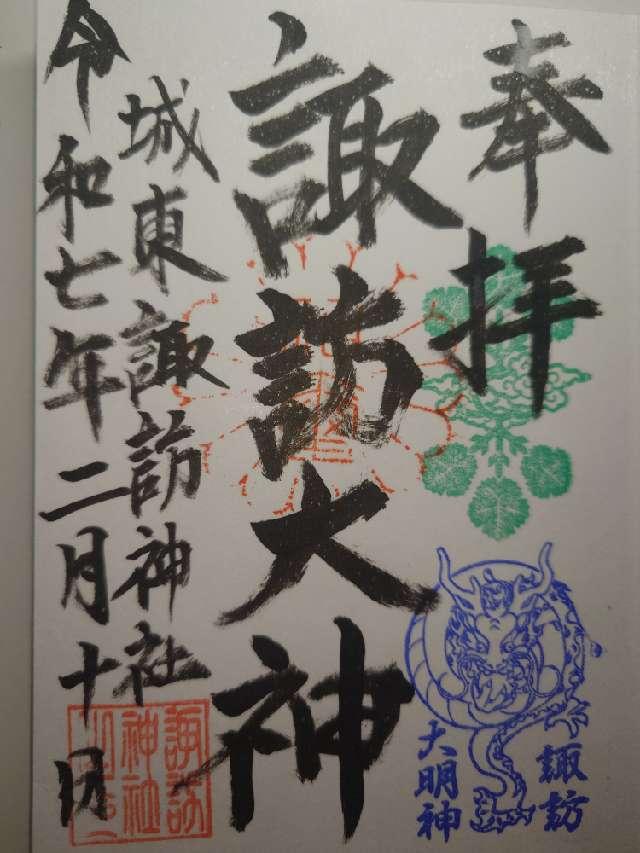 奉拝
諏訪大神
城東諏訪神社
令和七年二月十日
諏訪
大明神
諏訪
神社